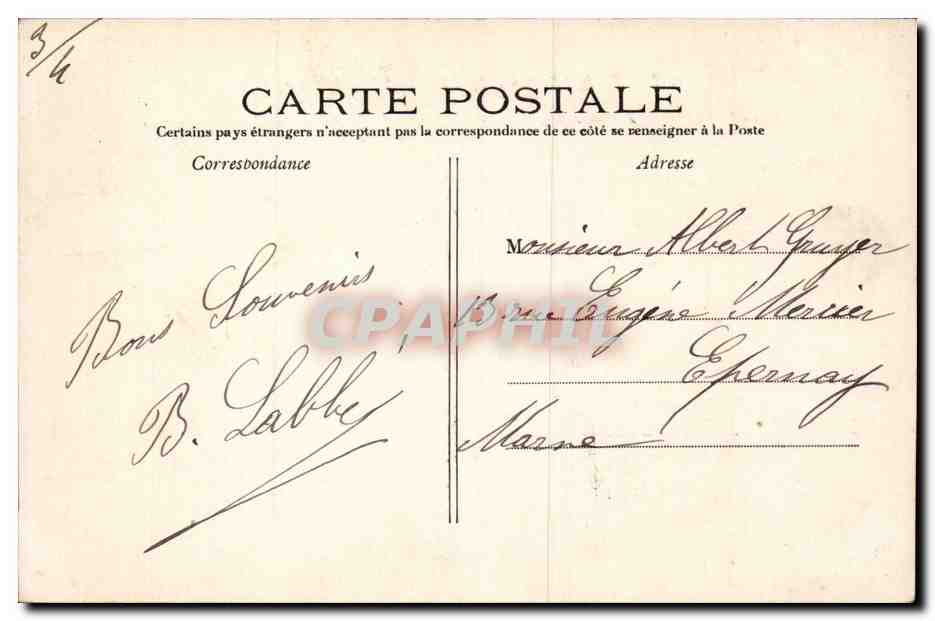 3/4
CARTE POSTALE
Certains pays étrangers n'acceptant pas la correspondance de ce côté se renseigner à la Poste
Correspondance
Adresse
Bons Souvenirs
B. Labbé
Monsieur Albert Gruyer
13 rue Eugène Mercier
Epernay
Marne
CPAPHIL